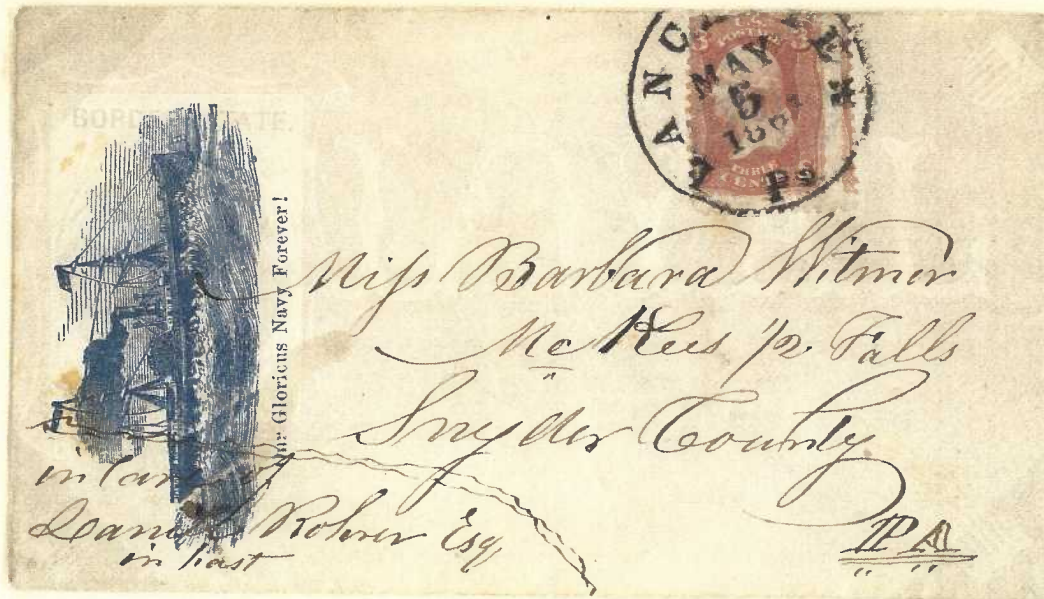 LANC
MAY
5
186
Pa
U.S.
POSTAGE
THREE
CENTS
BORDER STATE.
Our Glorious Navy Forever!
Miss Barbara Witmer
Mc Kees 1/2 Falls
Snyder County
PA
in Care of
Rohrer Esq
in hast